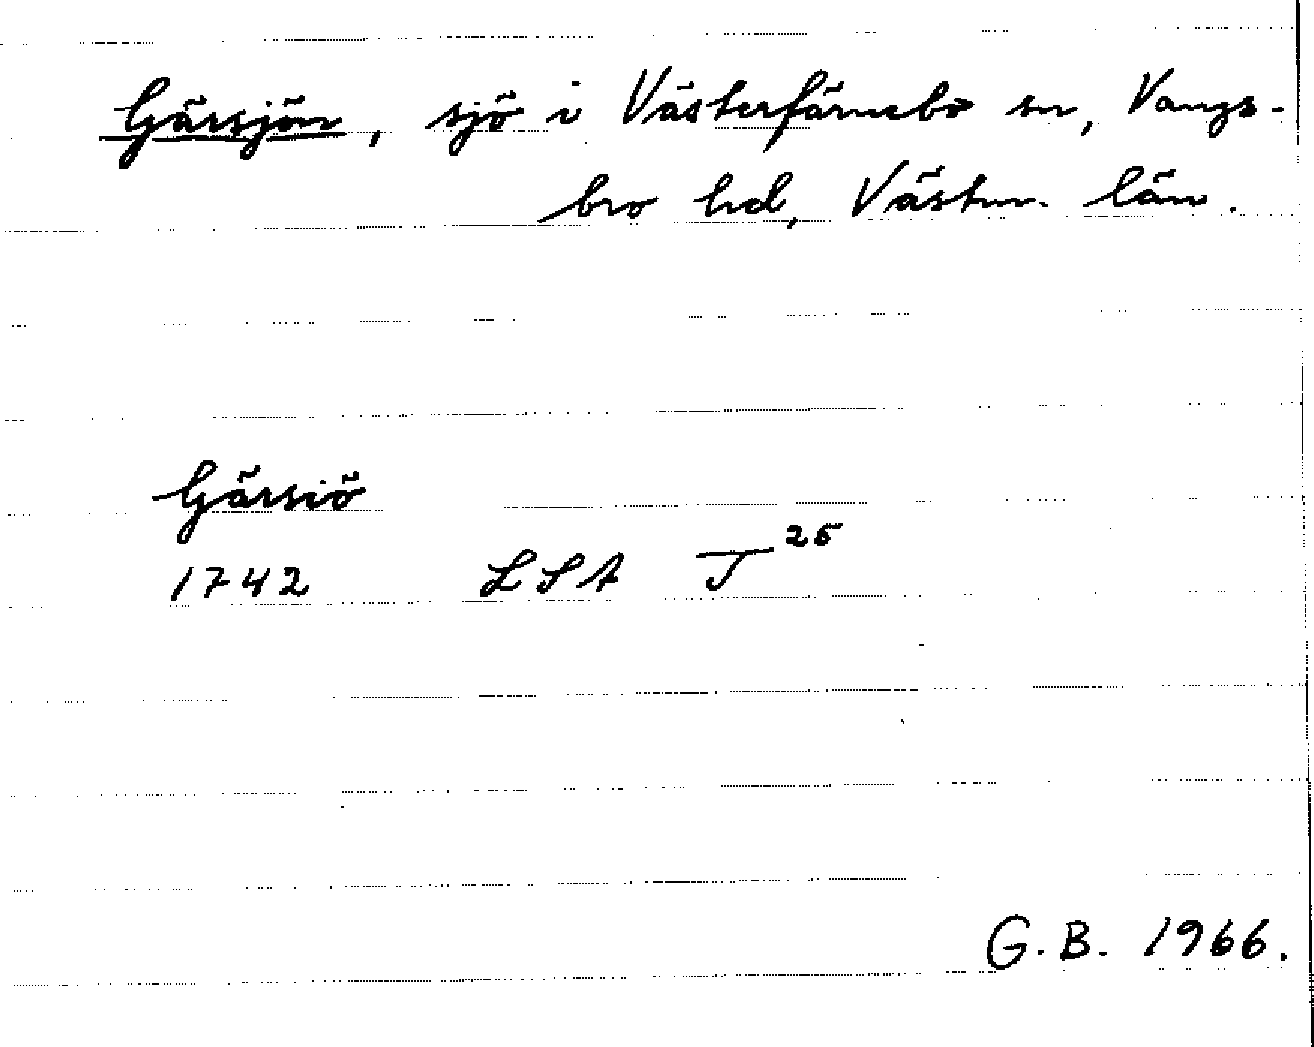 Gärsjön, sjö i Västerfärnebo sn, Vangs-
bro hd, Västm. län.
Gärsiö
1742 LSA J 25
G.B. 1966.